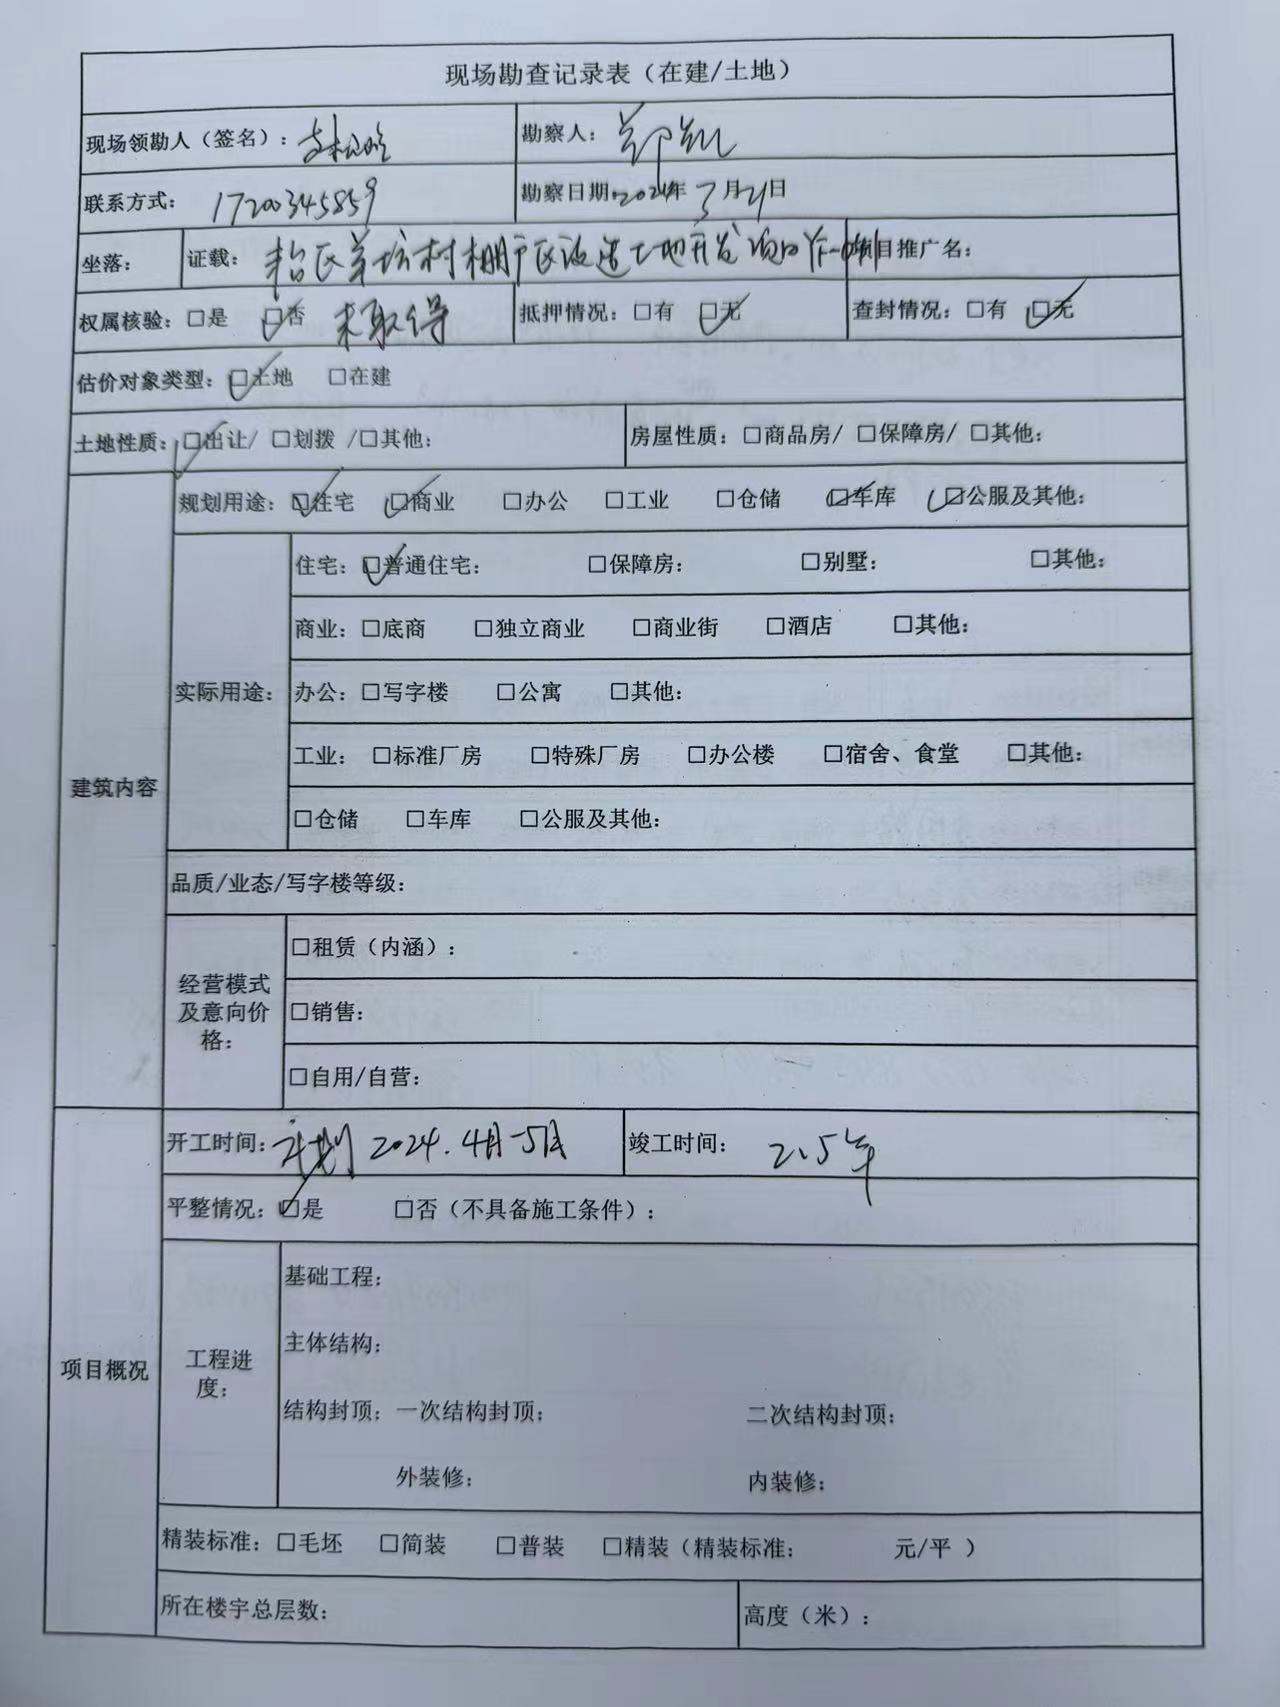 现场勘查记录表（在建/土地）
现场领勘人（签名）： 勘察人：
联系方式： 17200345859 勘察日期：2024年3月21日
坐落： 证载： 村棚户区改造土地开发项目 项目推广名：
权属核验：□是 ☑否 未取得 抵押情况：□有 ☑无 查封情况：□有 ☑无
估价对象类型：☑土地 □在建
土地性质：☑出让/ □划拨 /□其他： 房屋性质：□商品房/ □保障房/ □其他：
建筑内容
规划用途：☑住宅 ☑商业 □办公 □工业 □仓储 ☑车库 ☑公服及其他：
实际用途：
住宅：☑普通住宅： □保障房： □别墅： □其他：
商业：□底商 □独立商业 □商业街 □酒店 □其他：
办公：□写字楼 □公寓 □其他：
工业： □标准厂房 □特殊厂房 □办公楼 □宿舍、食堂 □其他：
□仓储 □车库 □公服及其他：
品质/业态/写字楼等级：
经营模式
及意向价
格：
□租赁（内涵）：
□销售：
□自用/自营：
项目概况
开工时间：计划 2024.4月-5月 竣工时间： 2.5年
平整情况：☑是 □否（不具备施工条件）：
工程进
度：
基础工程：
主体结构：
结构封顶：一次结构封顶； 二次结构封顶：
外装修： 内装修：
精装标准：□毛坯 □简装 □普装 □精装（精装标准： 元/平 ）
所在楼宇总层数： 高度（米）：